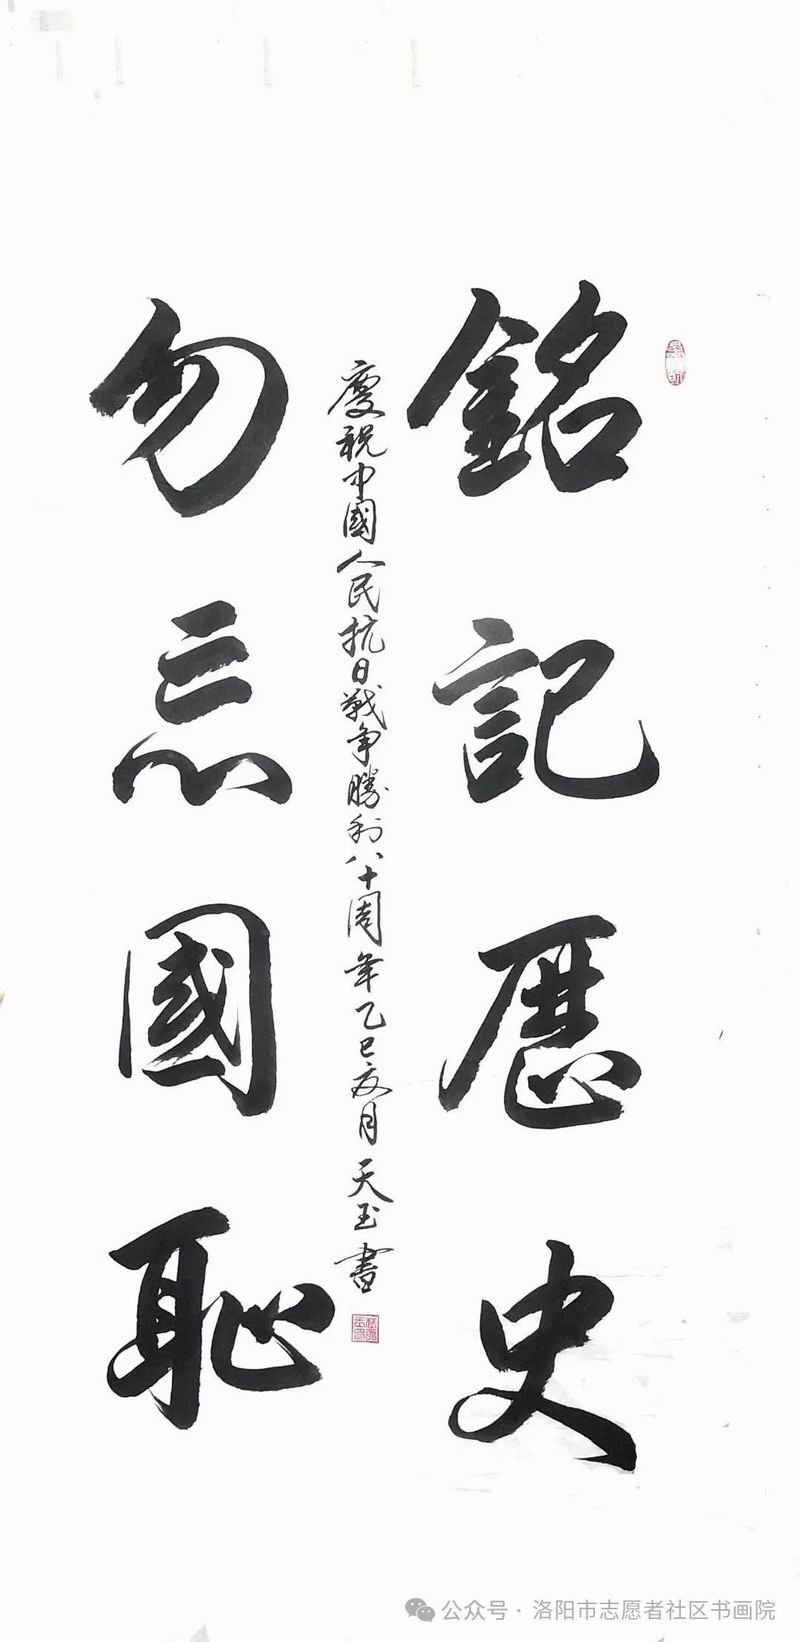 銘記歷史
慶祝中國人民抗日戰爭勝利八十周年乙巳夏月 天玉書
勿忘國恥
公众号 · 洛阳市志愿者社区书画院